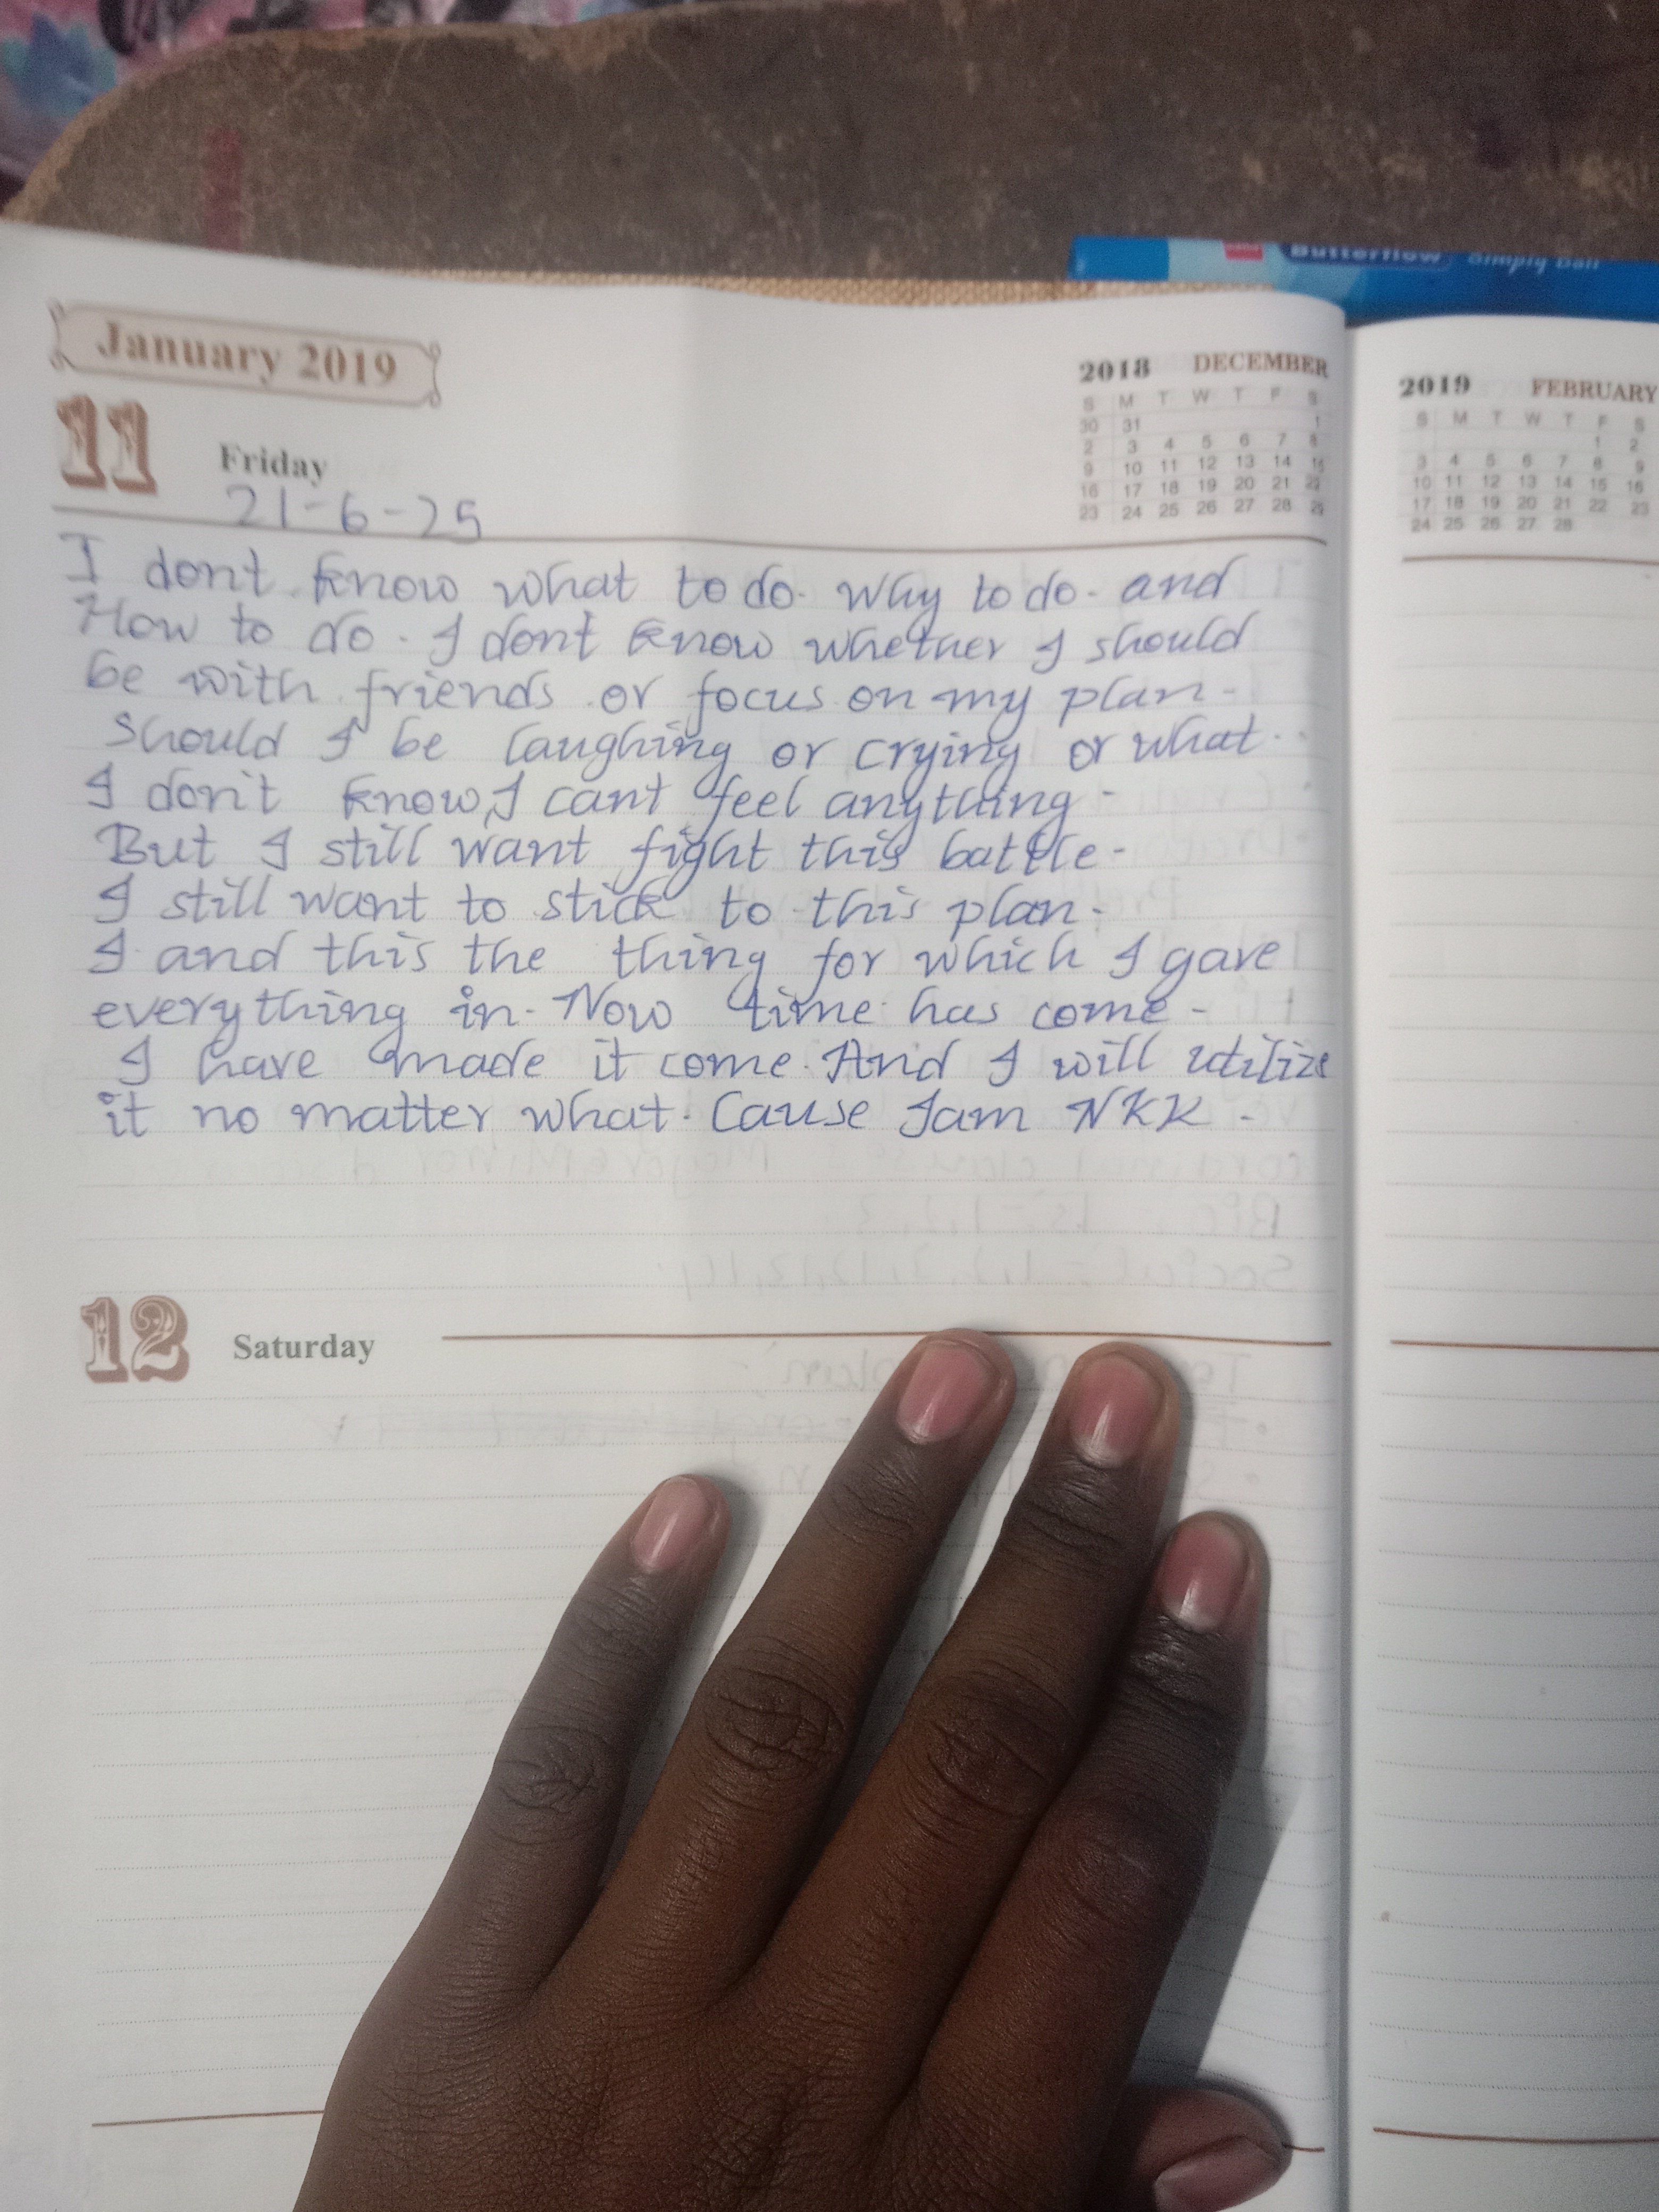 January 2019
11 Friday
21-6-25
2018 DECEMBER
S M T W T F S
30 31 1
2 3 4 5 6 7 8
9 10 11 12 13 14 15
16 17 18 19 20 21 22
23 24 25 26 27 28 29
I dont know what to do. Why to do. and
How to do. I dont know whether I should
be with friends or focus on my plan.
Should I be laughing or crying or what..
I don't know, I cant feel anything.
But I still want fight this battle.
I still want to stick to this plan.
I and this the thing for which I gave
everything in. Now time has come.
I have made it come. And I will utilize
it no matter what. Cause I am NKK.
12 Saturday
2019 FEBRUARY
S M T W T F S
1 2
3 4 5 6 7 8 9
10 11 12 13 14 15 16
17 18 19 20 21 22 23
24 25 26 27 28
Butterflow Simply Ball